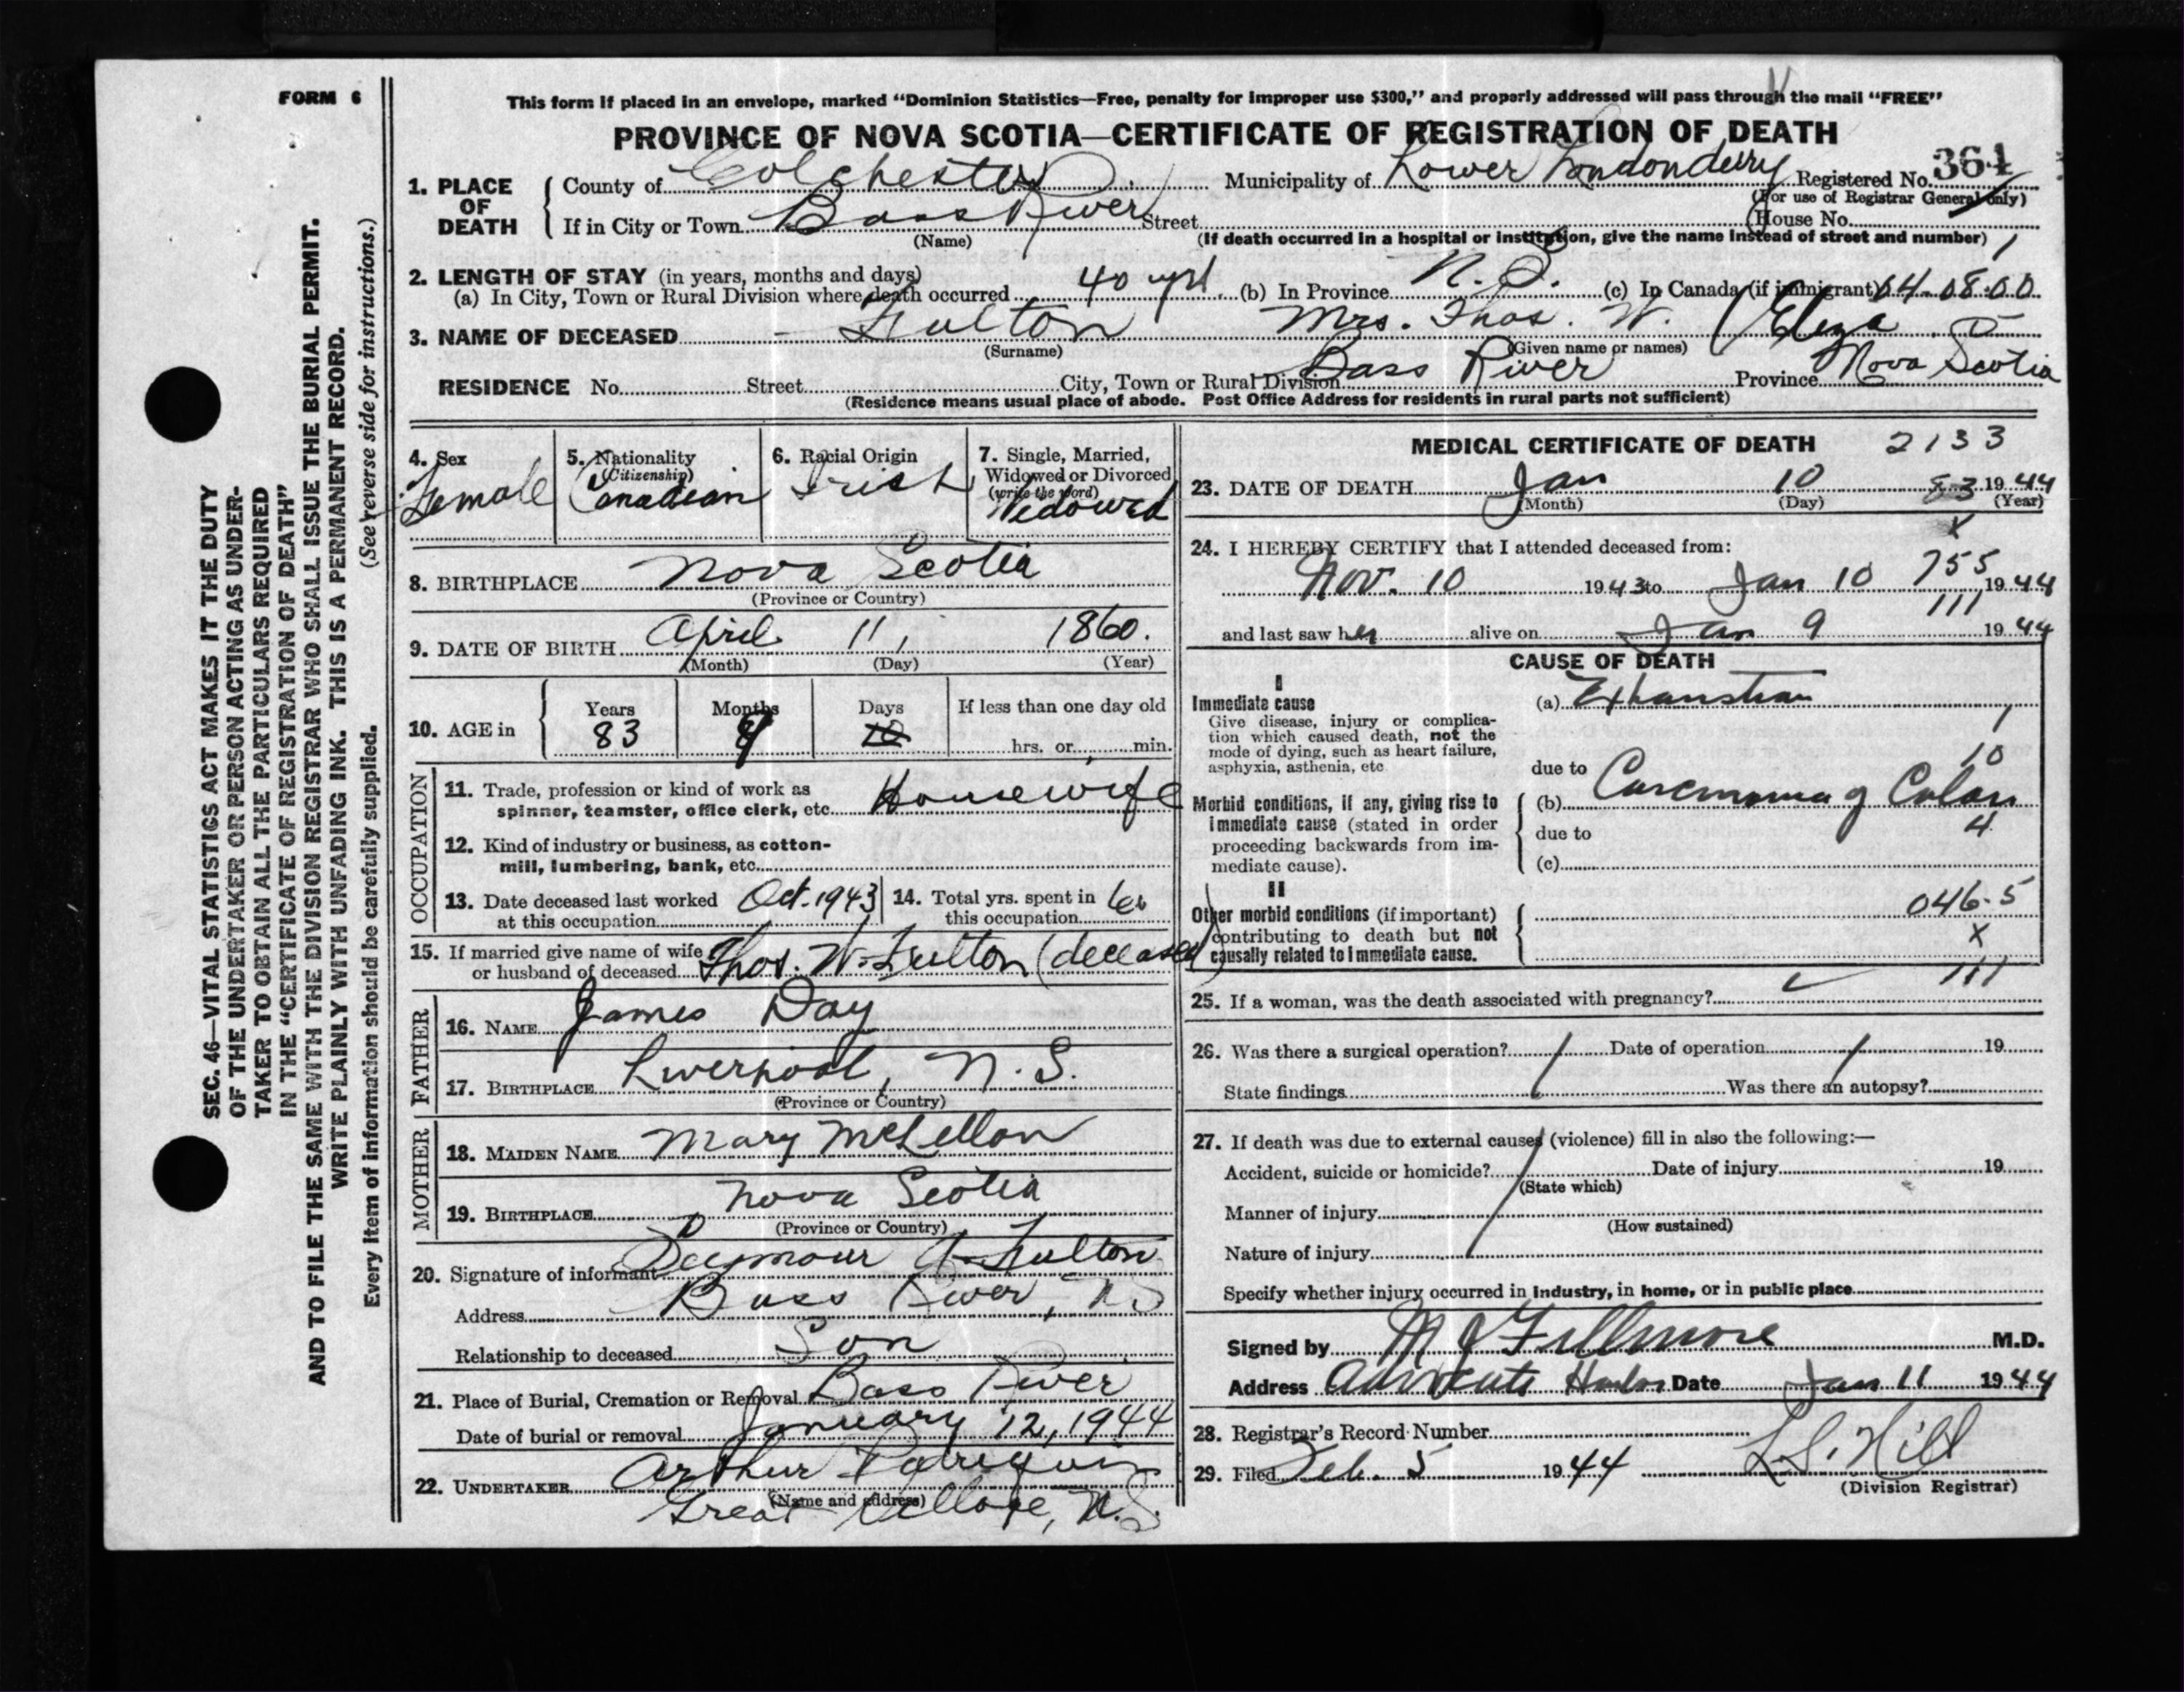 FORM 6
This form if placed in an envelope, marked “Dominion Statistics—Free, penalty for improper use $300,” and properly addressed will pass through the mail “FREE”
PROVINCE OF NOVA SCOTIA—CERTIFICATE OF REGISTRATION OF DEATH
1. PLACE OF DEATH County of Colchester Municipality of Lower Londonderry Registered No. 364
(For use of Registrar General only)
If in City or Town Bass River Street House No.
(Name) (If death occurred in a hospital or institution, give the name instead of street and number)
2. LENGTH OF STAY (in years, months and days)
(a) In City, Town or Rural Division where death occurred 40 yrs (b) In Province N.S. (c) In Canada (if immigrant) 04-08-00
3. NAME OF DECEASED Fulton Mrs. Thos. W. (Eliza
(Surname) (Given name or names)
RESIDENCE No. Street City, Town or Rural Division Bass River Province Nova Scotia
(Residence means usual place of abode. Post Office Address for residents in rural parts not sufficient)
4. Sex Female
5. Nationality (Citizenship) Canadian
6. Racial Origin Irish
7. Single, Married, Widowed or Divorced (write the word) Widowed
8. BIRTHPLACE Nova Scotia
(Province or Country)
9. DATE OF BIRTH April 11, 1860.
(Month) (Day) (Year)
10. AGE in Years Months Days If less than one day old
83 hrs. or min.
OCCUPATION
11. Trade, profession or kind of work as
spinner, teamster, office clerk, etc. Housewife
12. Kind of industry or business, as cotton-
mill, lumbering, bank, etc.
13. Date deceased last worked at this occupation Oct. 1943 14. Total yrs. spent in this occupation
15. If married give name of wife
or husband of deceased Thos. W. Fulton (deceased)
FATHER
16. NAME James Day
17. BIRTHPLACE Liverpool, N.S.
(Province or Country)
MOTHER
18. MAIDEN NAME Mary McLellan
19. BIRTHPLACE Nova Scotia
(Province or Country)
20. Signature of informant Seymour A. Fulton
Address Bass River, NS
Relationship to deceased Son
21. Place of Burial, Cremation or Removal Bass River
Date of burial or removal January 12, 1944
22. UNDERTAKER Arthur
(Name and address)
Great Village, N.S.
MEDICAL CERTIFICATE OF DEATH 2133
23. DATE OF DEATH Jan 10 83 1944
(Month) (Day) (Year)
X
24. I HEREBY CERTIFY that I attended deceased from:
755
Nov. 10 1943 to Jan 10 1944
111
and last saw her alive on Jan 9 1944
CAUSE OF DEATH
I
Immediate cause (a) Exhaustion
Give disease, injury or complica-
tion which caused death, not the
mode of dying, such as heart failure,
asphyxia, asthenia, etc.
1
10
due to
Morbid conditions, if any, giving rise to (b) Carcinoma of Colon
immediate cause (stated in order due to 4
proceeding backwards from im-
mediate cause). (c)
II
Other morbid conditions (if important) 046.5
contributing to death but not X
causally related to immediate cause.
111
25. If a woman, was the death associated with pregnancy?
26. Was there a surgical operation? Date of operation 19
State findings Was there an autopsy?
27. If death was due to external causes (violence) fill in also the following:—
Accident, suicide or homicide? Date of injury 19
(State which)
Manner of injury
(How sustained)
Nature of injury
Specify whether injury occurred in industry, in home, or in public place
Signed by Fillmore M.D.
Address Advocate Harbor Date Jan 11 1944
28. Registrar's Record Number
29. Filed Feb. 5 1944 L.S. Hill
(Division Registrar)
SEC. 46—VITAL STATISTICS ACT MAKES IT THE DUTY
OF THE UNDERTAKER OR PERSON ACTING AS UNDER-
TAKER TO OBTAIN ALL THE PARTICULARS REQUIRED
IN THE “CERTIFICATE OF REGISTRATION OF DEATH”
AND TO FILE THE SAME WITH THE DIVISION REGISTRAR WHO SHALL ISSUE THE BURIAL PERMIT.
WRITE PLAINLY WITH UNFADING INK. THIS IS A PERMANENT RECORD.
Every item of information should be carefully supplied. (See reverse side for instructions.)